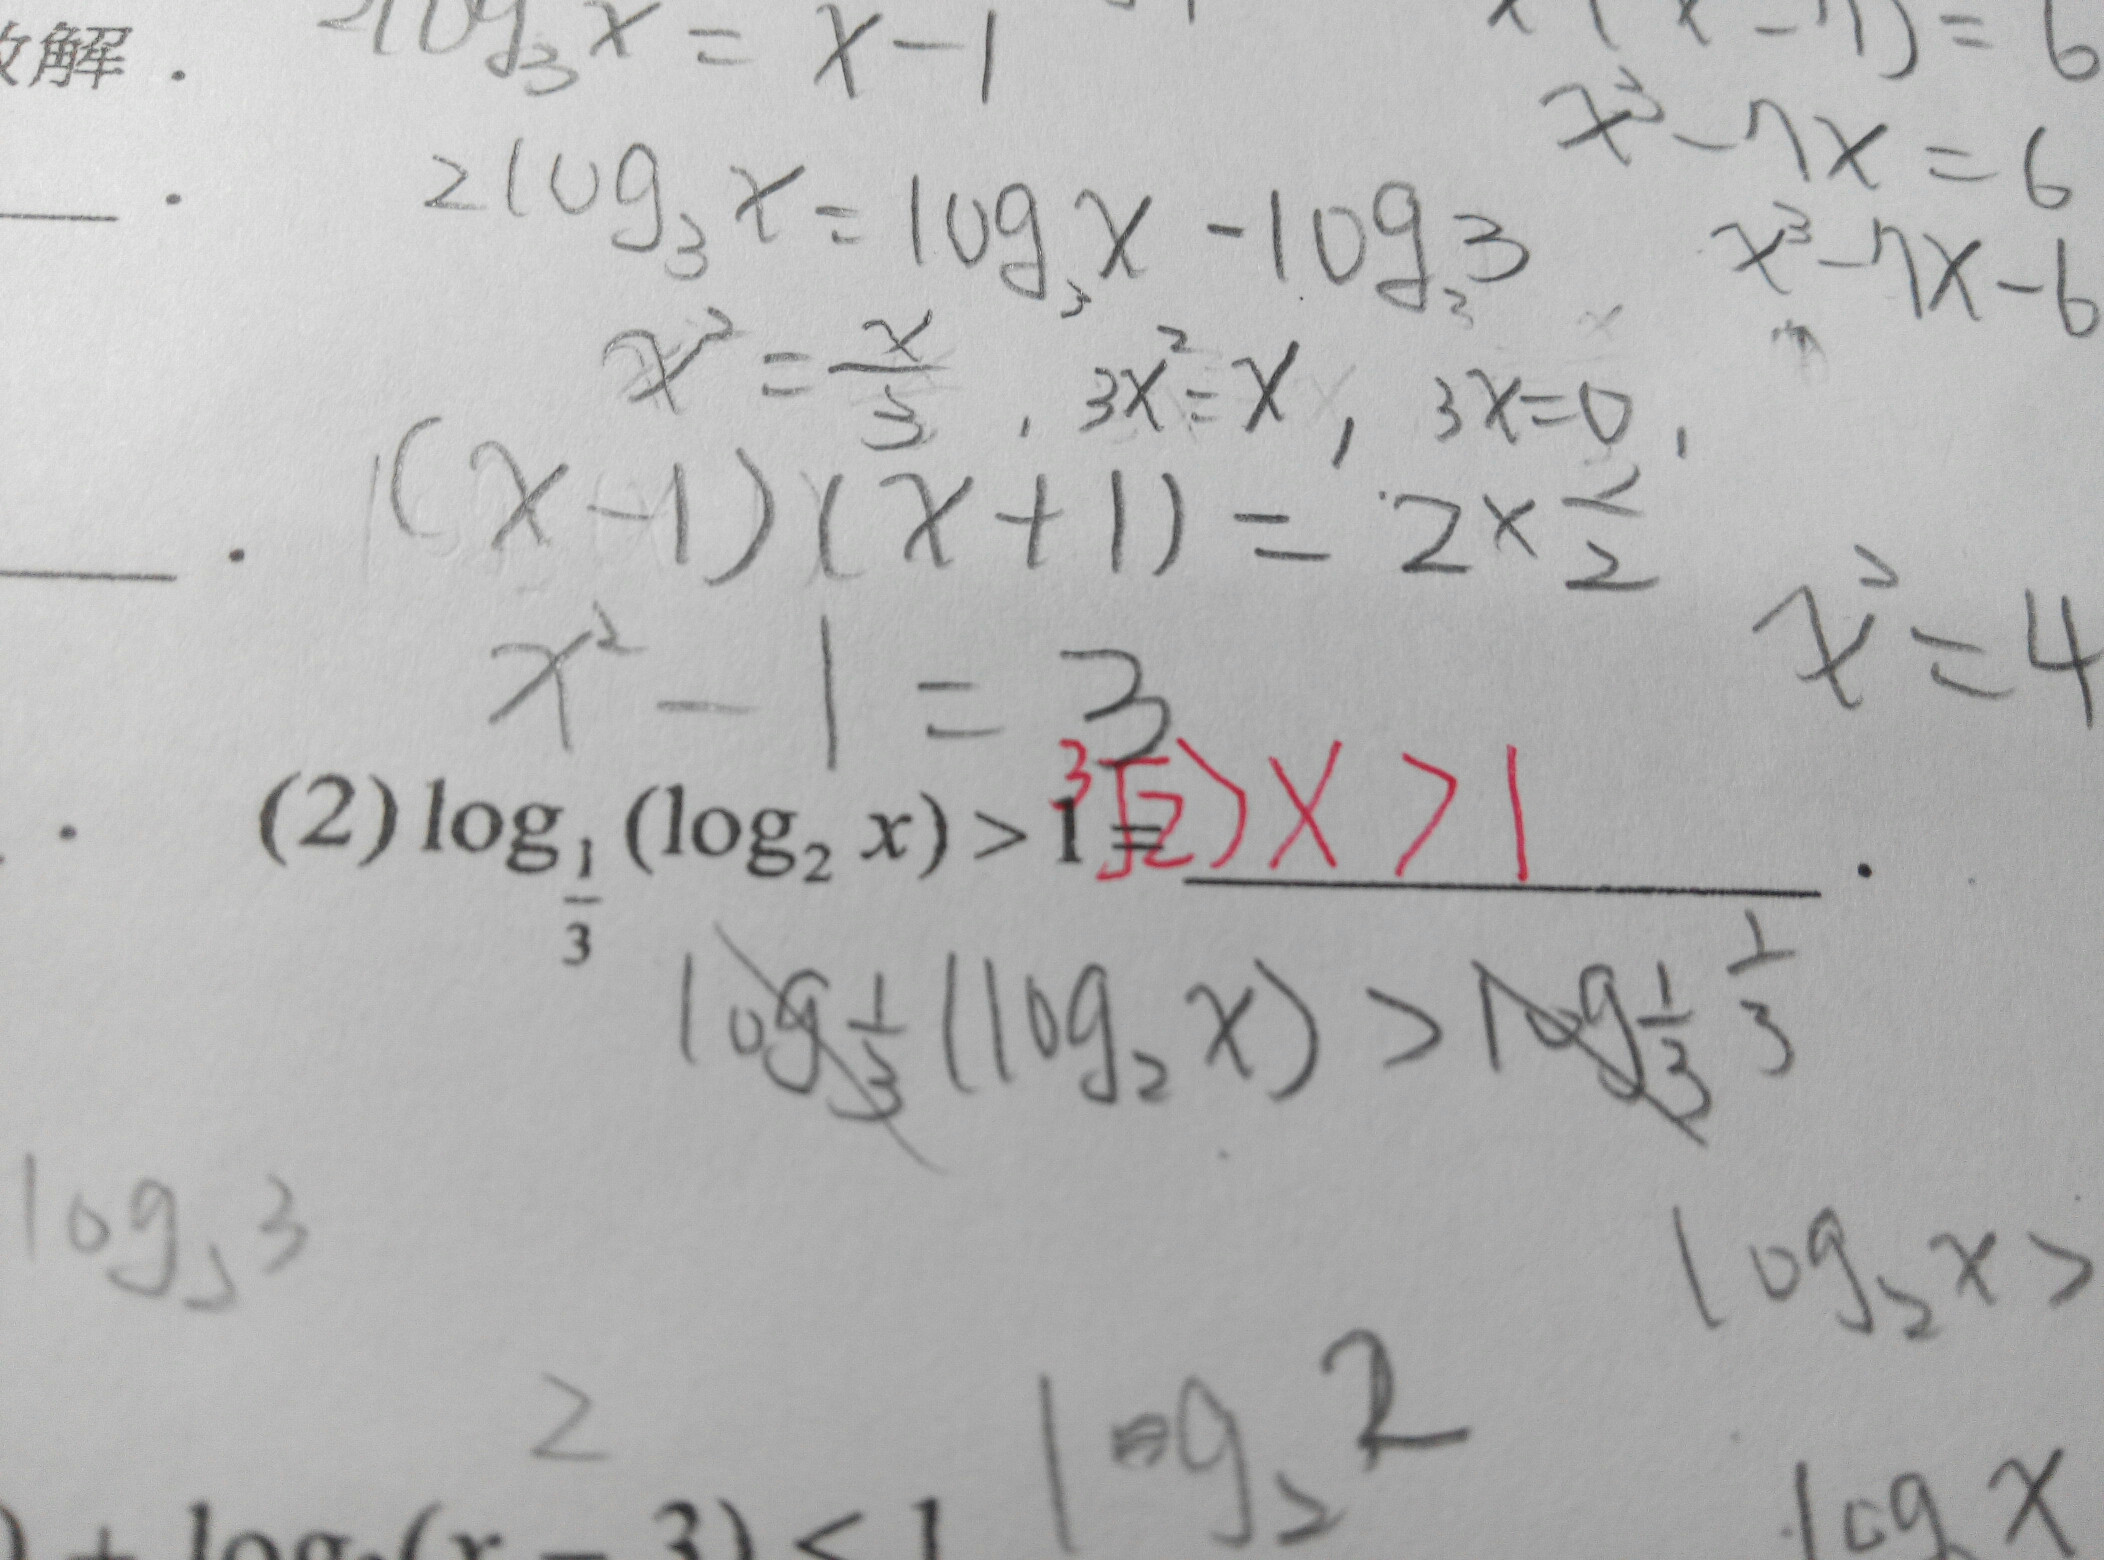 解.
log₃x = x-1
x³-7x=6
2log₃x=log₃x-log₃3
x³-7x-6
x²=x/3, 3x²=x, 3x=0,
(x-1)(x+1)=2×
x²=4
x²-1=3
³√2>x>1
(2) log_{1/3}(log₂ x) > 1 = ______.
log_{1/3}(log₂x)>log_{1/3} 1/3
log 3
log₂x>
2
log₂2
+ log (x - 3) < 1
log x